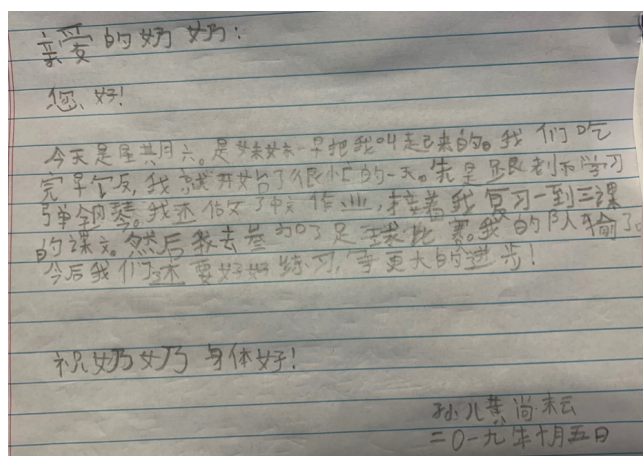 亲爱的奶奶：
您好！
今天是星期六。是妹妹一早把我叫起来的。我们吃
完早饭，我就开始了很忙的一天。先是跟老师学习
弹钢琴。我还做了中文作业，接着我复习一到三课
的课文。然后我去参加了足球比赛。我的队输了。
今后我们还要好好练习，争更大的进步！
祝奶奶身体好！
孙儿黄尚耘
二〇一九年十月五日